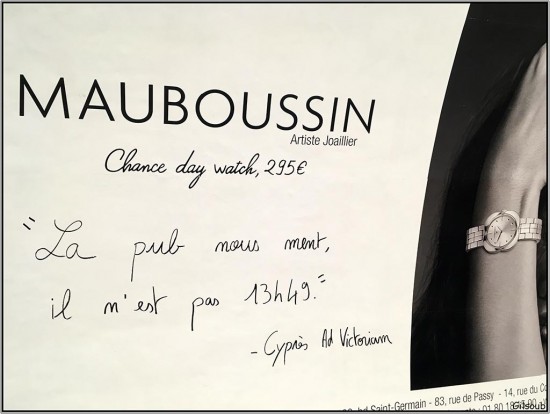 MAUBOUSSIN
Artiste Joaillier
Chance day watch, 295€
"La pub nous ment,
il n'est pas 13h49."
- Cyprès Ad Victoriam
bd Saint-Germain - 83, rue de Passy - 14, rue du Co
01 80 18
Gilsoub